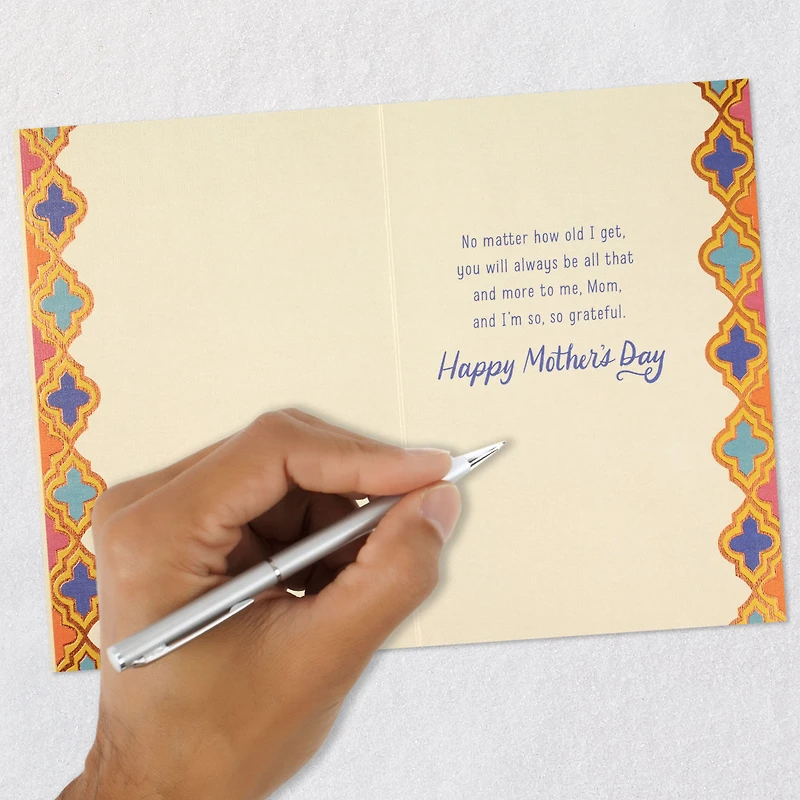 No matter how old I get,
you will always be all that
and more to me, Mom,
and I'm so, so grateful.
Happy Mother's Day